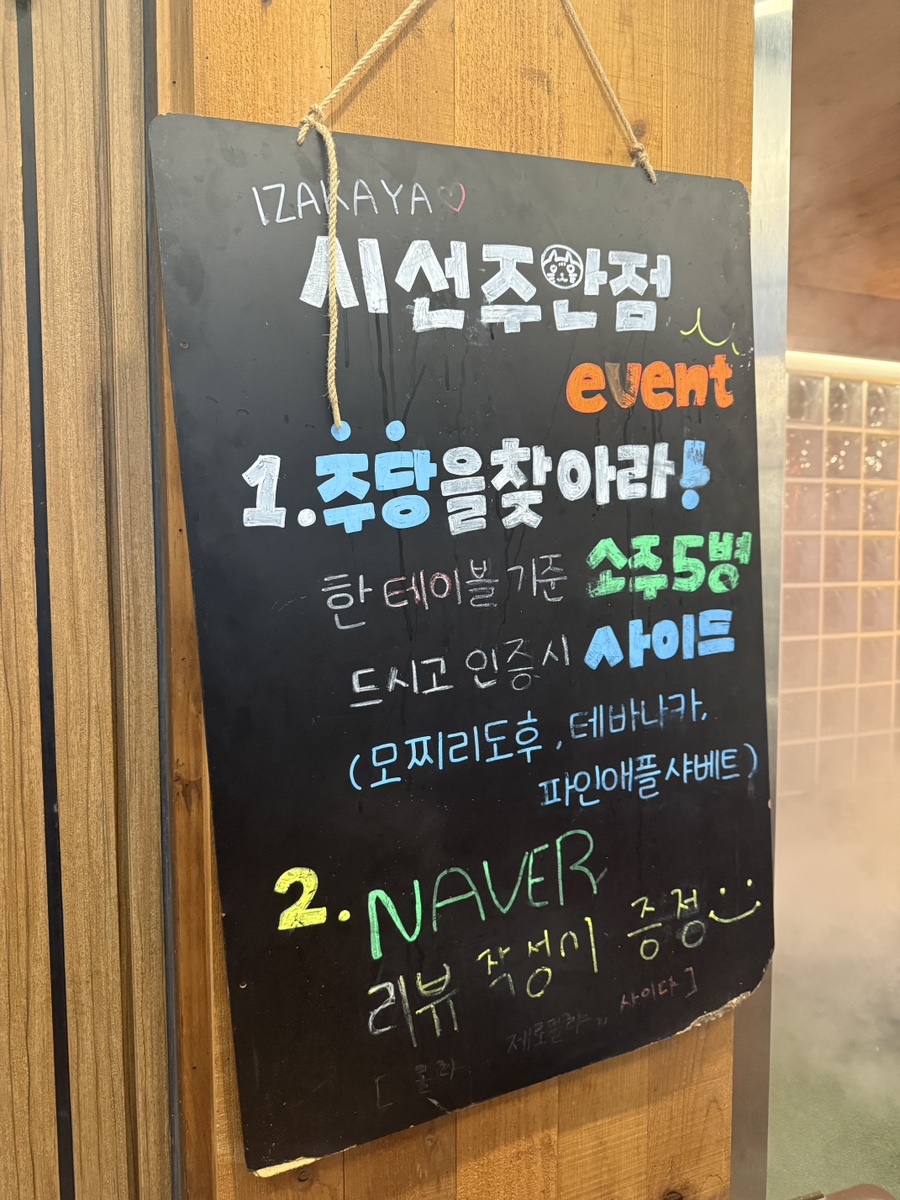 IZAKAYA♡
시선주안점
event
1. 주당을찾아라!
한 테이블 기준 소주5병
드시고 인증시 사이드
(모찌리도후, 테바나카,
파인애플샤베트)
2. NAVER
리뷰 작성시 증정
[ 콜라 제로콜라 사이다 ]